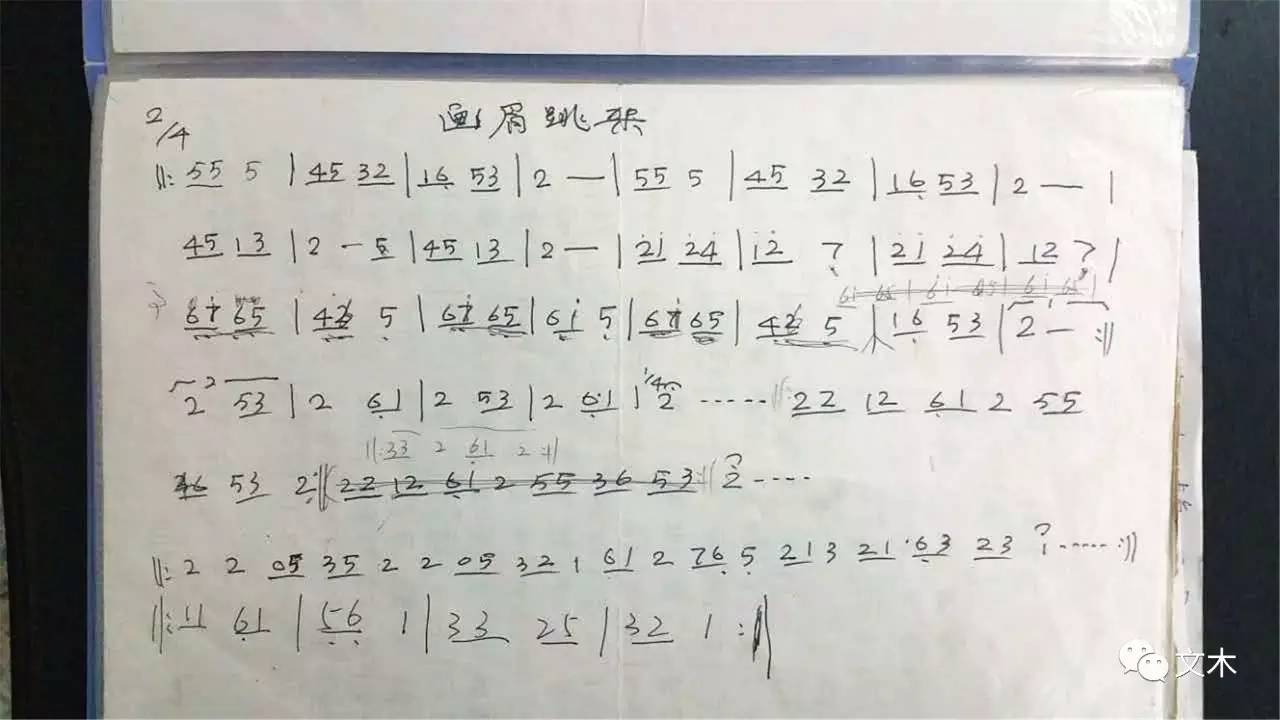 2/4 画眉跳架
‖: 55 5 | 45 32 | 16 53 | 2 — | 55 5 | 45 32 | 16 53 | 2 — |
45 13 | 2 — 5 | 45 13 | 2 — | 21 24 | 12 7 | 21 24 | 12 7 |
65 | 5 | 65 | 61 5 | 65 | 5 | 16 53 | 2 — :‖
2 53 | 2 61 | 2 53 | 2 61 | 1/4 2 ····· ‖: 22 12 61 2 55
‖: 33 2 61 2 :‖
36 53 2 :‖ 22 12 61 2 55 36 53 :‖ 2 ····
‖: 2 2 05 35 2 2 05 32 1 61 2 76 5 213 21·63 23 1 ····· :‖
‖: 11 61 | 56 1 | 33 25 | 32 1 :‖
文木